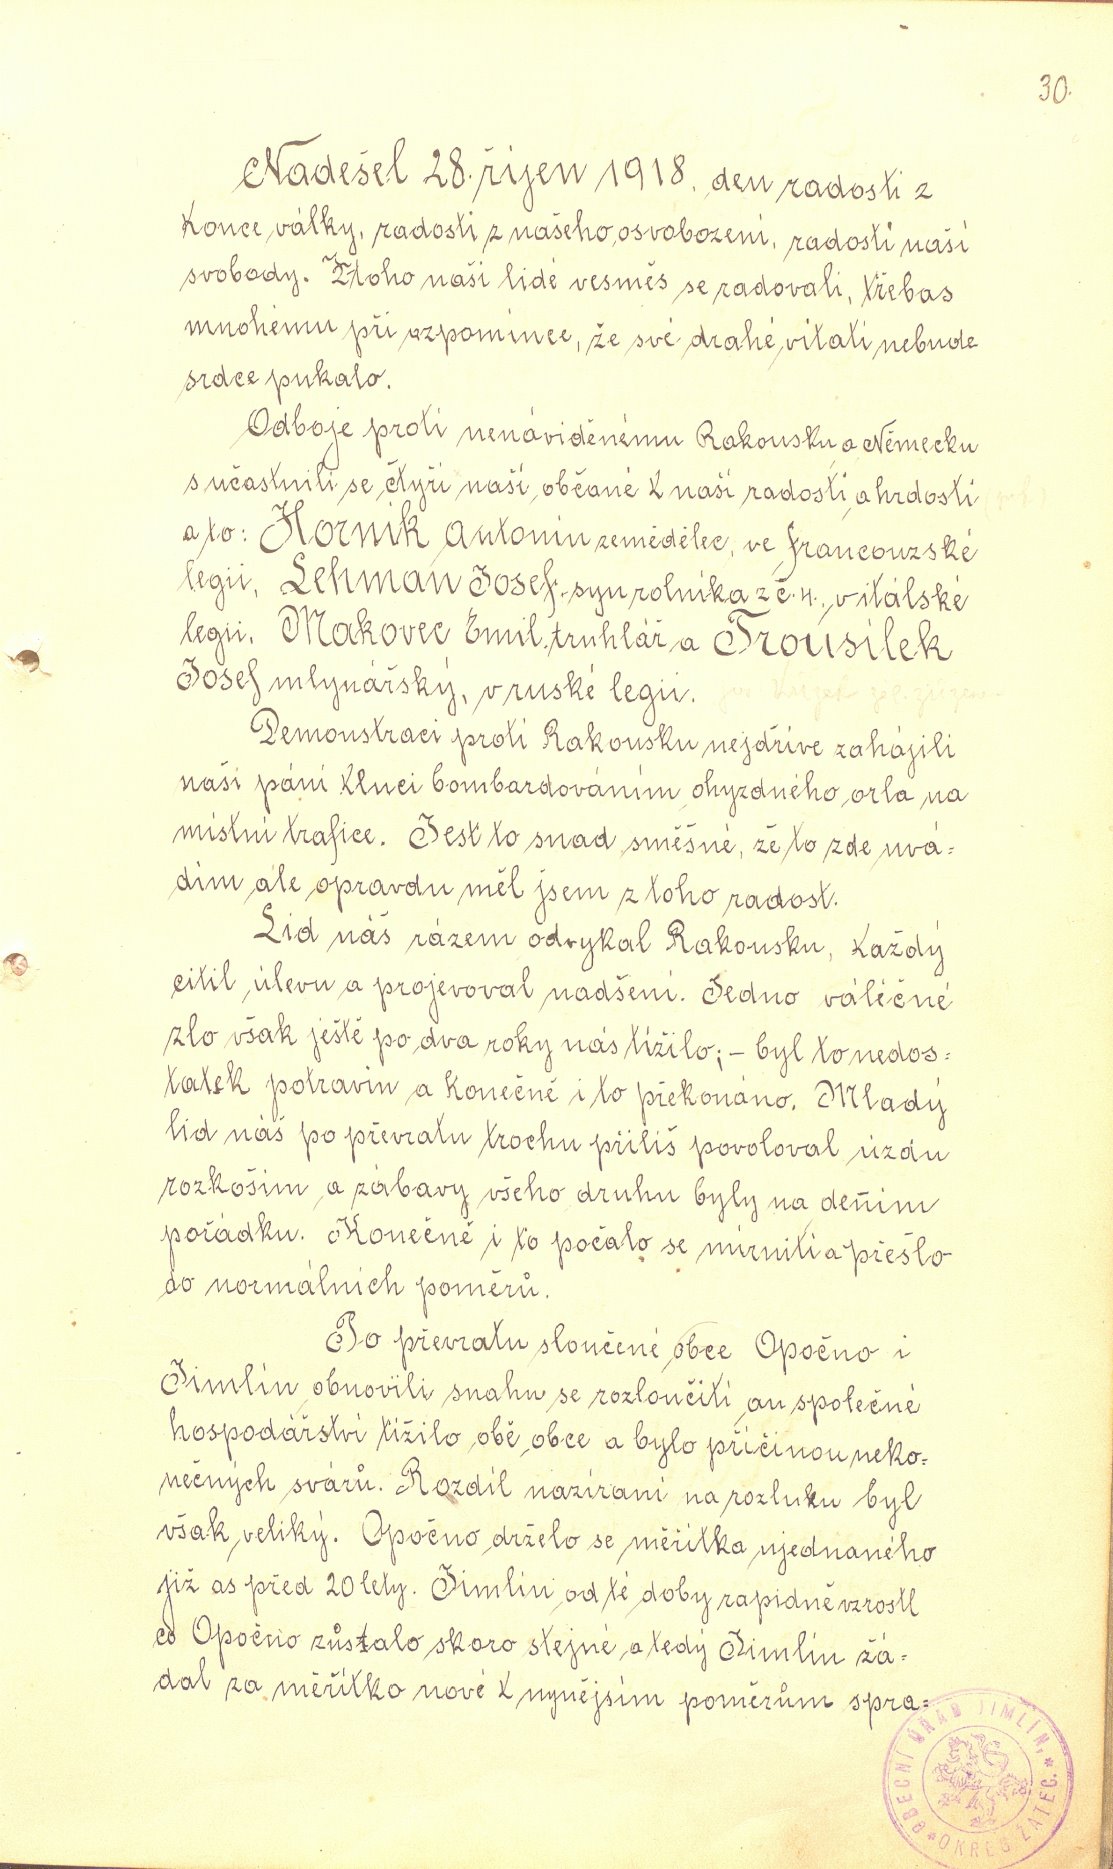 30.
Nadešel 28. říjen 1918, den radosti z
konce války, radosti z našeho osvobození, radosti naší
svobody. Z toho naši lidé vesměs se radovali, třebas
mnohému při vzpomínce, že své drahé vítati nebude
srdce pukalo.
Odboje proti nenáviděnému Rakousku a Německu
súčastnili se čtyři naši občané k naší radosti a hrdosti
a to: Horník Antonín zemědělec, ve francouzské
legii, Lehman Josef, syn rolníka z č. 4., v itálské
legii, Makovec Emil, truhlář a Trousílek
Josef mlynářský, v ruské legii.
Demonstraci proti Rakousku nejdříve zahájili
naši páni kluci bombardováním ohyzdného orla na
místní trafice. Jest to snad směšné, že to zde uvá=
dím ale opravdu měl jsem z toho radost.
Lid náš rázem odvykal Rakousku, každý
cítil úlevu a projevoval nadšení. Jedno váléčné
zlo však ještě po dva roky nás tížilo; – byl to nedos=
tatek potravin a konečně i to překonáno. Mladý
lid náš po převratu trochu příliš povoloval úzdu
rozkoším a zábavy všeho druhu byly na deňím
pořádku. Konečně i to počalo se mírniti a přešlo
do normálních poměrů.
Po převratu sloučené obce Opočno i
Jimlín obnovili snahu se rozloučiti an společné
hospodářství tížilo obě obce a bylo příčinou neko=
nečných svárů. Rozdíl nazírání na rozluku byl
však veliký. Opočno drželo se měřítka ujednaného
již as před 20 lety. Jimlín od té doby rapidně vzrostl
co Opočno zůstalo skoro stejné a tedy Jimlín žá=
dal za měřítko nové k nynějsím poměrům spra=
OBECNÍ ÚŘAD JIMLÍN, * OKRES ŽATEC. *